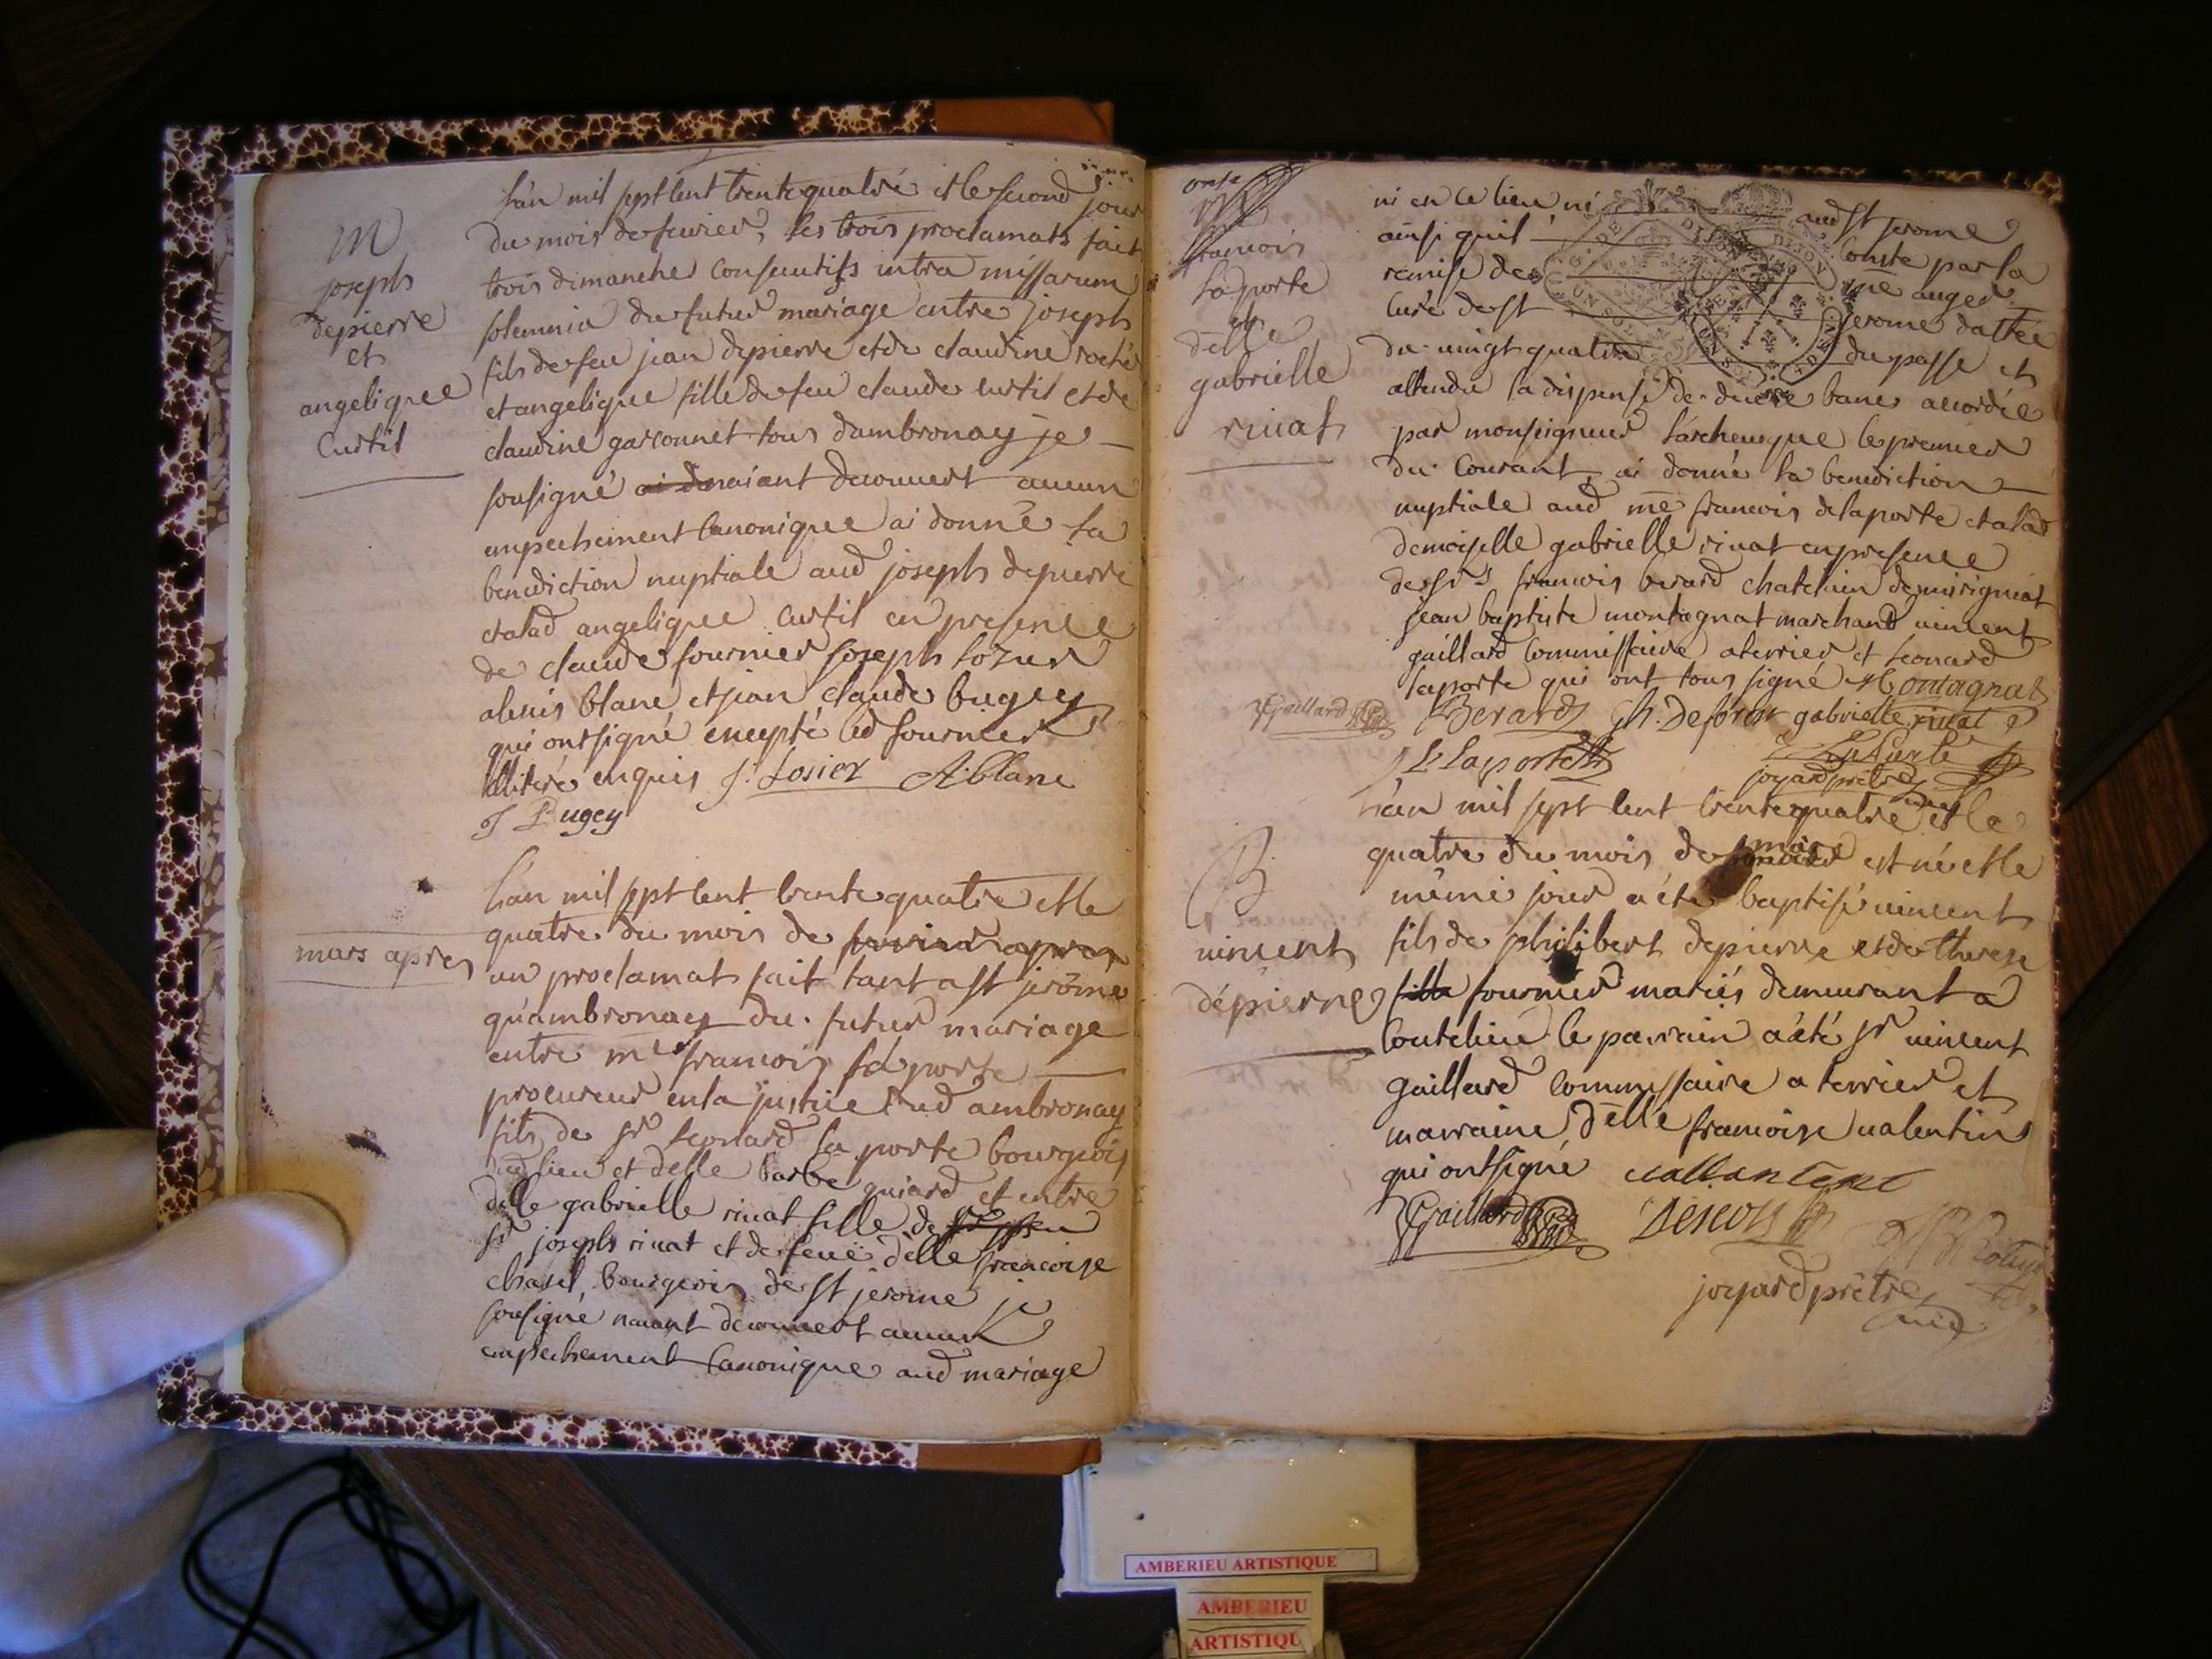 M
joseph
depierre
et
angelique
Curtil
l'an mil sept cent trente quatre et le second jour
du mois de fevrier, les trois proclamats fait
trois dimanche consecutifs intra missarum
solemnia du futur mariage entre joseph
fils de feu jean depierre et de claudine
et angelique fille de feu claude curtil et de
claudine garconnet tous dambronay je
sousigné naiant decouvert aucun
empechement canonique ai donné la
benediction nuptiale aud joseph depierre
et alad angelique curtil en presence
de claude fournier joseph lozier
alexis blanc et jean claude bugey
qui ont signé excepté led fournier
illitere enquis J. Losier A. blanc
J Bugey
mars apres
l'an mil sept cent trente quatre et le
quatre du mois de fevrier apres
un proclamat fait tant a st jerôme
qu'ambronay du futur mariage
entre me francois la porte
procureur en la justice dud ambronay
fils de sr leonard la porte bourgeois
dud lieu et delle barbe guiard et entre
delle gabrielle rivat fille de
sr joseph rivat et de feue delle francoise
chanel, bourgeois de st jerome je
sousigné naiant decouvert aucun
empechement canonique aud mariage
francois
laporte
et
delle
gabrielle
rivat
ni en ce lieu ni aud st jerome
ainsi quil conste par la
remise de me auger
curé de st jerome dattée
du vingt quatre du passe et
attendu la dispense de deux banc accordée
par monseigneur l'archeveque le premier
du courant, ai donné la benediction
nuptiale aud me francois delaporte et alad
demoiselle gabrielle rivat en presence
de srs francois berard chatelain de
jean baptiste montagnat marchand vincent
gaillard commissaire a terrier et leonard
laporte qui ont tous signé Montagnat
VGaillard Berard Jh. Deforest gabrielle rivat
L Laporte LaPorte
joyard prêtre
B
vincent
dépierre
l'an mil sept cent trente quatre et le
quatre du mois de mars est né et le
même jour a été baptisé vincent
fils de philibert depierre et de therese
fille fournier mariés demeurant a
le parrain a été sr vincent
gaillard commissaire a terrier et
marraine delle francoise valentin
qui ont signé
VGaillard
joyard prêtre